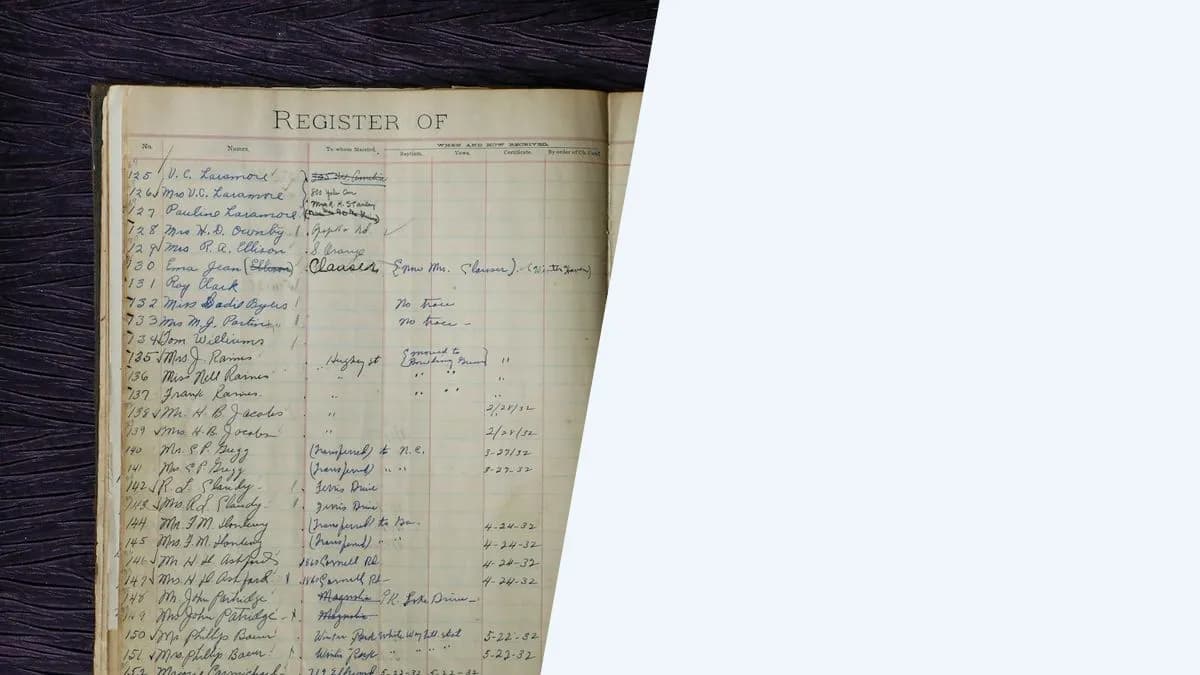 REGISTER OF
No. Names. To whom Married. WHEN AND HOW RECEIVED.
Baptism. Vows. Certificate. By order of Ch. Conf
125 V. C. Laramore
126 Mrs V. C. Laramore
127 Pauline Laramore
128 Mrs H. D. Ownby Rd.
129 Mrs R. A. Ellison S Orange
130 Jean (Ellison) Clauser (now Mrs. Clauser) (Winter Haven)
131 Roy Clark
132 Miss Sadie Byers No trace
133 Mrs M. J. No trace -
134 Tom Williams
135 Mrs J. Raines Hughey st moved to "
136 Miss Nell Raines " " " "
137 Frank Raines " " " "
138 Mr. H. B. Jacobs " 2/28/32
139 Mrs. H. B. Jacobs " 2/28/32
140 Mr. E. P. Gregg (Transferred) to N.C. 3-27/32
141 Mrs E P Gregg (Transferred) " " 3-27-32
142 R. L. Ferris Drive
143 Mrs R L Ferris Drive
144 Mr. F. M. (Transferred) to Ga. 4-24-32
145 Mrs. F. M. (Transferred) " " 4-24-32
146 Mr H H Ashford Cornell Rd. 4-24-32
147 Mrs H H Ashford Cornell Rd 4-24-32
148 Mr. John Partridge Magnolia Drive
149 Mrs John Patridge Magnolia
150 Mr Phillip Bauer Winter Park 5-22-32
151 Mrs. Phillip Bauer Winter Park " " " " 5-22-32
152 Carmichael 719 Ellwood 5-22-32 5-22-32